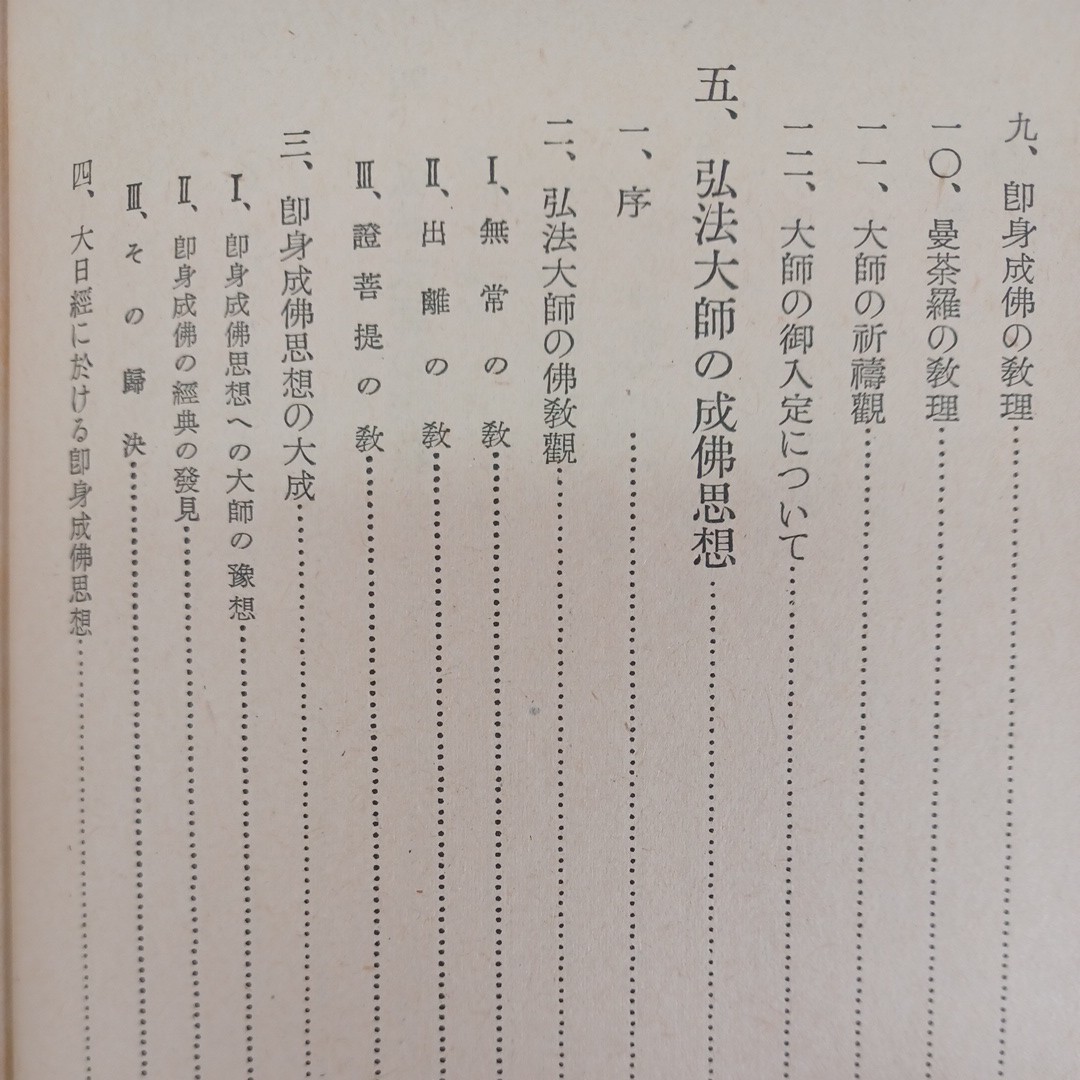 九、卽身成佛の敎理
一〇、曼荼羅の敎理
一一、大師の祈禱觀
一二、大師の御入定について
五、弘法大師の成佛思想
一、序
二、弘法大師の佛敎觀
Ⅰ、無常の敎
Ⅱ、出離の敎
Ⅲ、證菩提の敎
三、卽身成佛思想の大成
Ⅰ、卽身成佛思想への大師の豫想
Ⅱ、卽身成佛の經典の發見
Ⅲ、その歸決
四、大日經に於ける卽身成佛思想